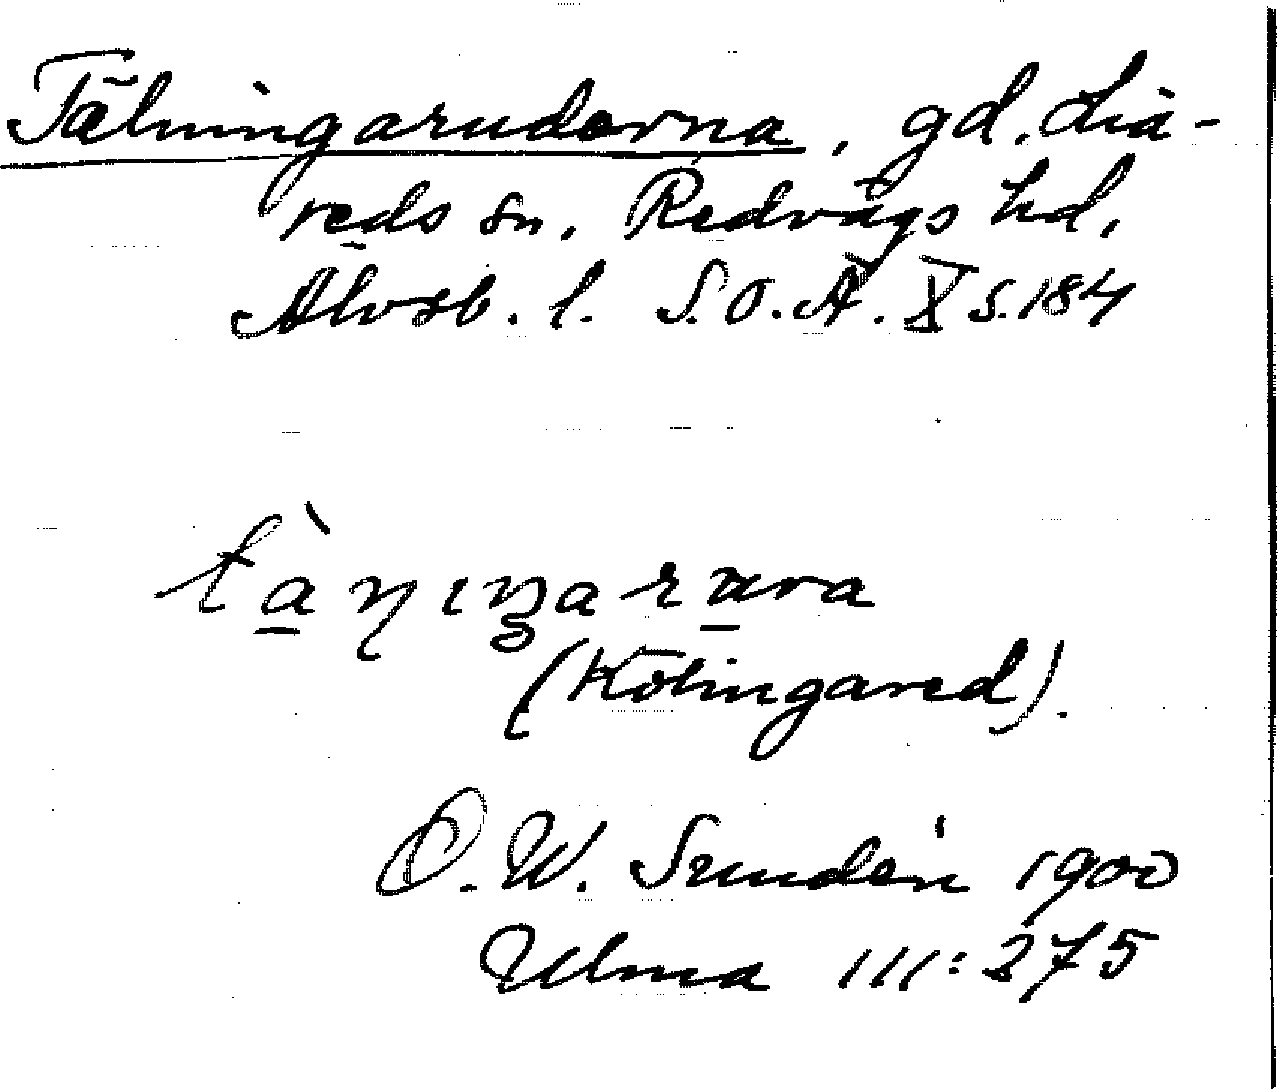 Tälningaruderna, gd. Lia-
reds sn, Redvägs hd,
Älvsb. l. S.O.Ä. X s. 184
(Kölingared).
O. W. Sundén 1900
Ulma 111:275